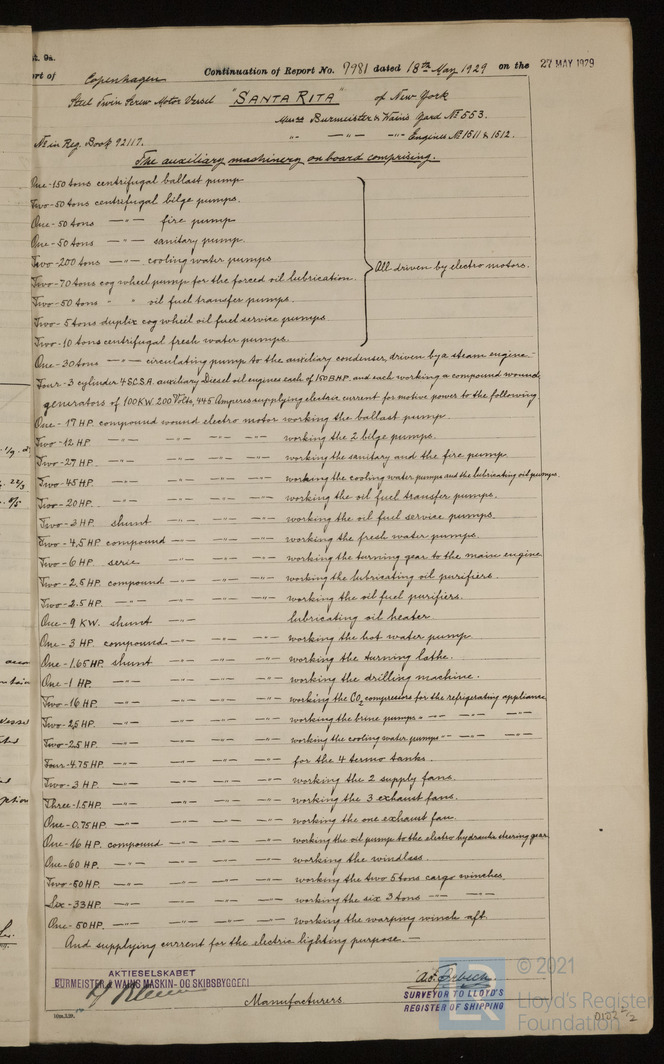 Copenhagen Continuation of Report No. 7981 dated 18th May 1929 on the 27 MAY 1929
Steel Twin Screw Motor Vessel "SANTA RITA" of New York
Messrs Burmeister & Wains Yard No 553.
" — " — " — Engines No 1511 & 1512.
No in Reg. Book 92117.
The auxiliary machinery on board comprising.
One - 150 tons centrifugal ballast pump
Two - 50 tons centrifugal bilge pumps.
One - 50 tons — " — fire pump
One - 50 tons — " — sanitary pump.
Two - 200 tons — " — cooling water pumps
Two - 70 tons cog wheel pump for the forced oil lubrication.
Two - 50 tons " " oil fuel transfer pumps.
Two - 5 tons duplex cog wheel oil fuel service pumps
Two - 10 tons centrifugal fresh water pumps.
All driven by electro motors.
One - 30 tons — " — circulating pump to the auxiliary condenser, driven by a steam engine. -
Four - 3 cylinder 4 S.C.S.A. auxiliary Diesel oil engines each of 150 BHP. and each working a compound wound
generators of 100 KW. 200 Volts, 445 Amperes supplying electric current for motive power to the following
One - 17 HP. compound wound electro motor working the ballast pump.
Two - 12 HP — " — — " — — " — working the 2 bilge pumps.
Two - 27 HP. — " — — " — — " — working the sanitary and the fire pump
Two - 45 HP. — " — — " — — " — working the cooling water pumps and the lubricating oil pumps.
Two - 20 HP. — " — — " — — " — working the oil fuel transfer pumps.
Two - 3 HP. shunt — " — — " — working the oil fuel service pumps.
Two - 4,5 HP. compound — " — — " — working the fresh water pumps.
Two - 6 HP. serie — " — — " — working the turning gear to the main engine.
Two - 2.5 HP. compound — " — — " — working the lubricating oil purifiers.
Two - 2.5 HP. — " — — " — — " — working the oil fuel purifiers.
One - 9 KW. shunt — " — lubricating oil heater
One - 3 HP. compound — " — — " — working the hot water pump
One - 1.65 HP. shunt — " — — " — working the turning lathe.
One - 1 HP. — " — — " — — " — working the drilling machine.
Two - 16 HP. — " — — " — — " — working the CO2 compressors for the refrigerating appliance
Two - 2,5 HP. — " — — " — — " — working the brine pumps — " — — " — — " —
Two - 2.5 HP. — " — — " — — " — working the cooling water pumps — " — — " — — " —
Four - 4.75 HP. — " — — " — — " — for the 4 termo tanks.
Two - 3 HP. — " — — " — — " — working the 2 supply fans.
Three - 1.5 HP. — " — — " — — " — working the 3 exhaust fans.
One - 0.75 HP — " — — " — — " — working the one exhaust fan.
One - 16 HP. compound — " — — " — working the oil pump to the electro hydraulic steering gear
One - 60 HP. — " — — " — — " — working the windlass.
Two - 50 HP. — " — — " — — " — working the two 5 tons cargo winches.
Six - 33 HP. — " — — " — — " — working the six 3 tons — " — — " —
One - 50 HP. — " — — " — — " — working the warping winch aft.
And supplying current for the electric lighting purpose. —
AKTIESELSKABET
BURMEISTER & WAINS MASKIN- OG SKIBSBYGGERI
Manufacturers
SURVEYOR TO LLOYD'S
REGISTER OF SHIPPING
© 2021
Lloyd's Register
Foundation